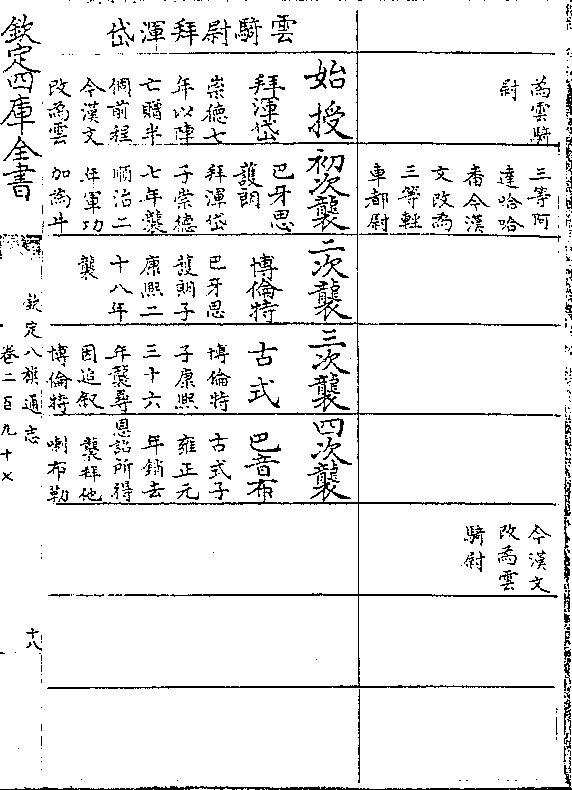 為雲騎
尉
三等阿
達哈哈
番今漢
文改為
三等輕
車都尉
今漢文
改為雲
騎尉
雲騎尉拜渾岱
始授
拜渾岱
崇德七
年以陣
亡贈半
個前程
今漢文
改為雲
初次襲
巴牙思
護朗
拜渾岱
子崇德
七年襲
順治二
年軍功
加為牛
二次襲
博倫特
巴牙思
護朗子
康熙二
十八年
襲
三次襲
古式
博倫特
子康熙
三十六
年襲尋
因追叙
博倫特
四次襲
巴音布
古式子
雍正元
年銷去
恩詔所得
襲拜他
喇布勒
欽定四庫全書
欽定八旗通志
卷二百九十
十八